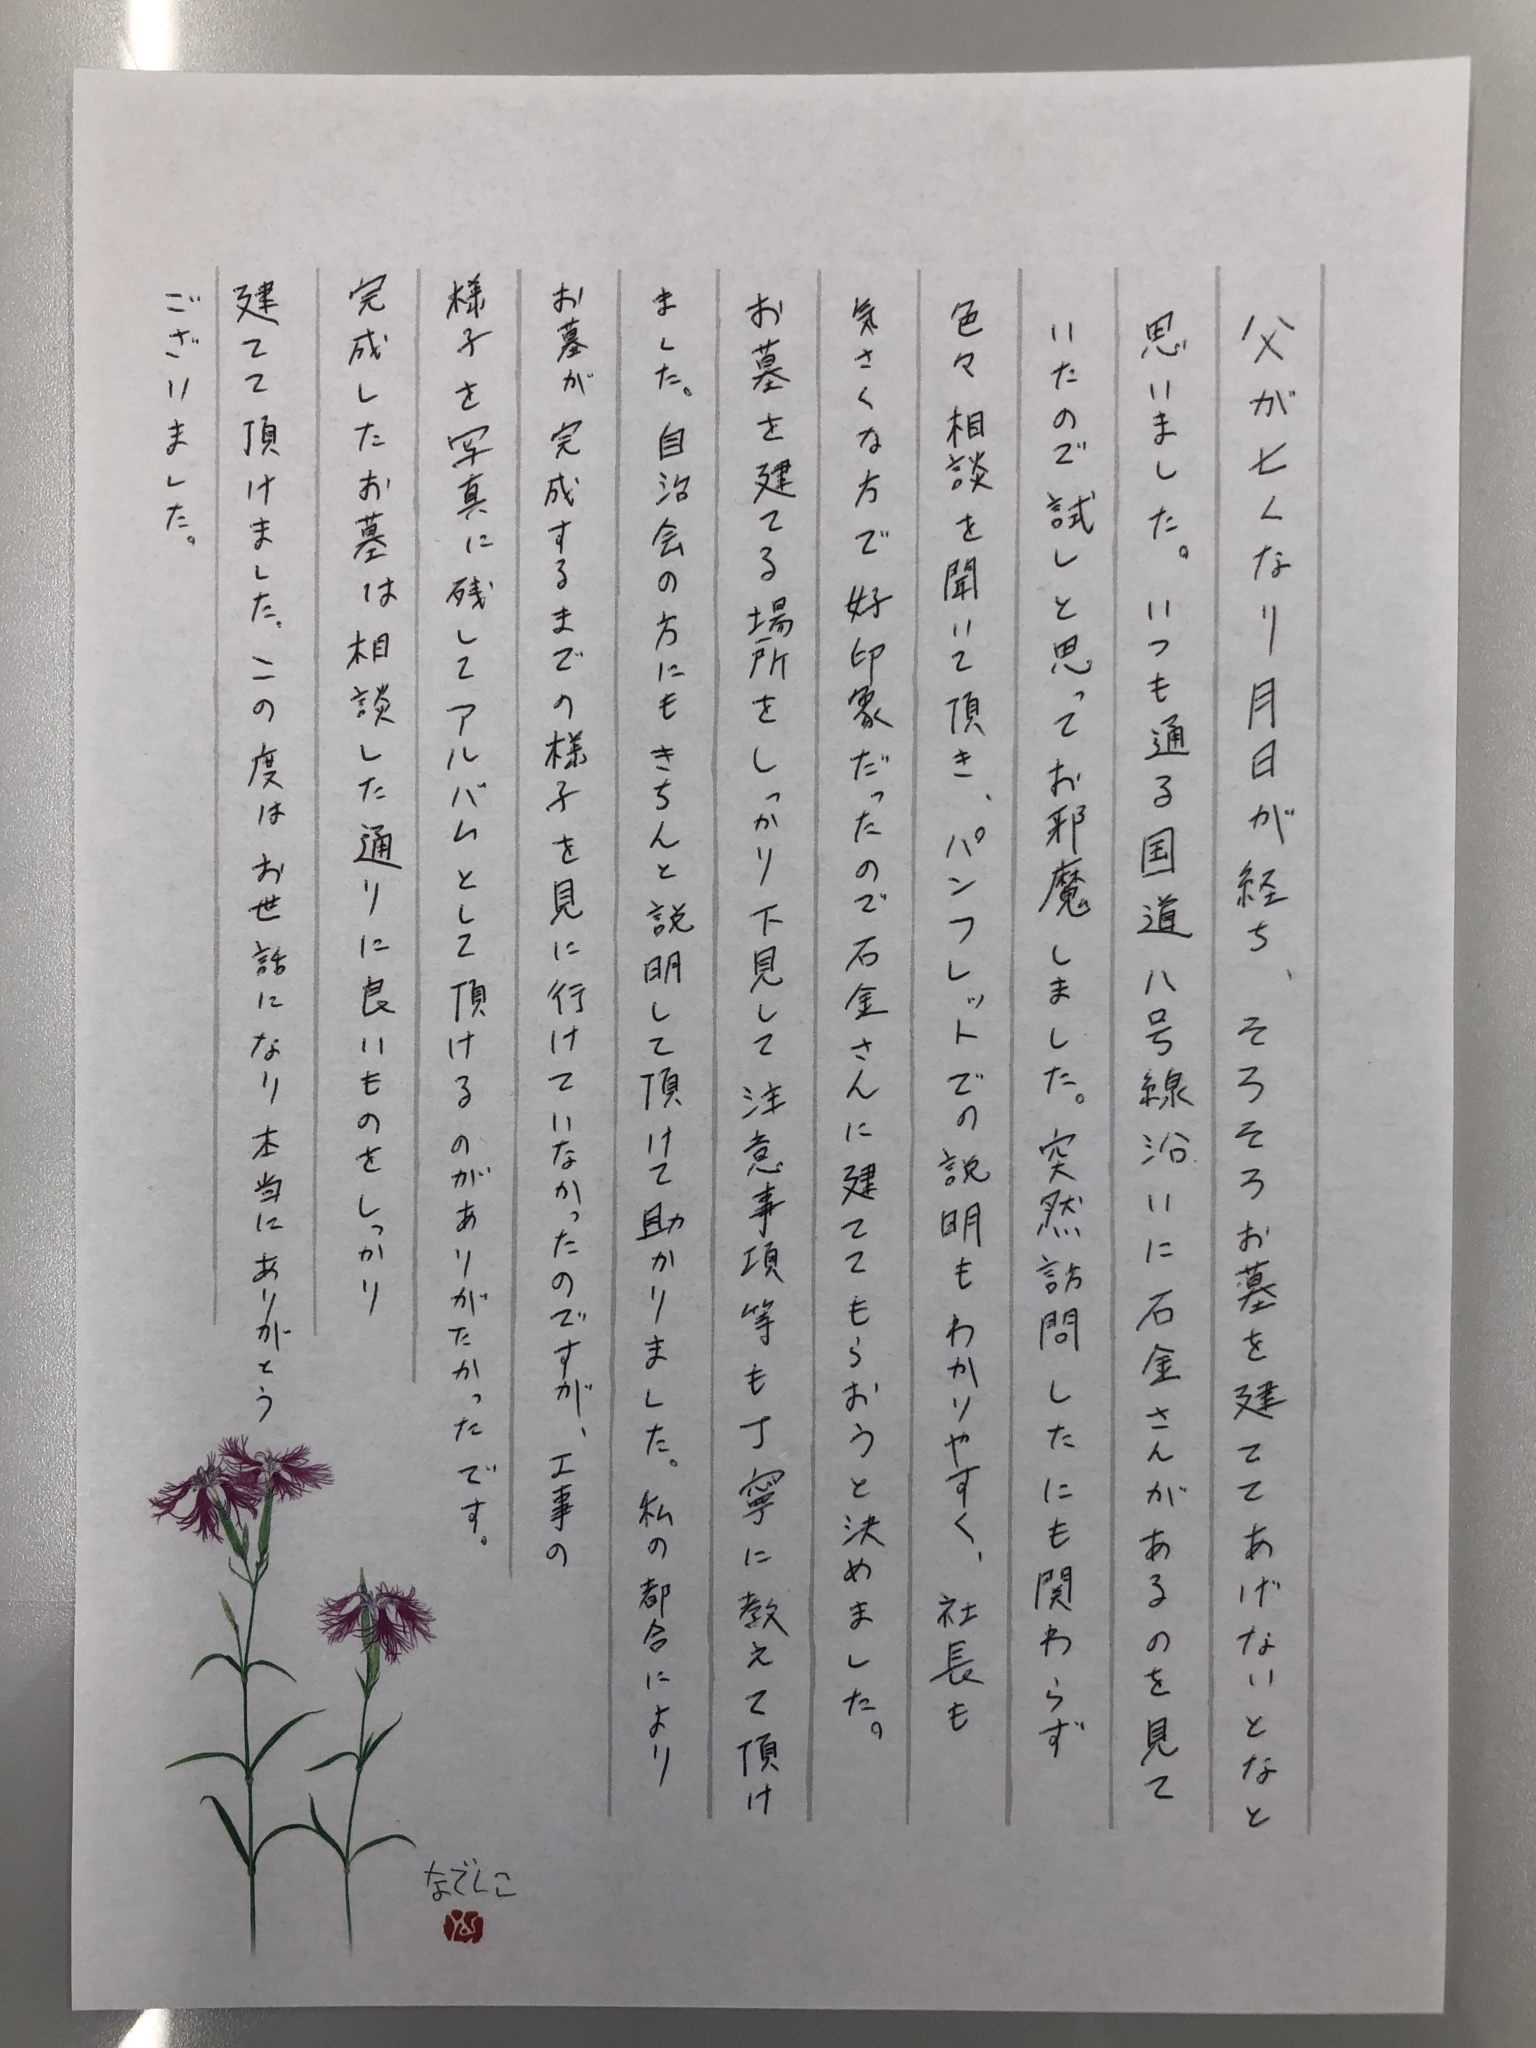 父が亡くなり月日が経ち、そろそろお墓を建ててあげないとなと
思いました。いつも通る国道八号線沿いに石金さんがあるのを見て
いたので試しと思ってお邪魔しました。突然訪問したにも関わらず
色々相談を聞いて頂き、パンフレットでの説明もわかりやすく、社長も
気さくな方で好印象だったので石金さんに建ててもらおうと決めました。
お墓を建てる場所をしっかり下見して注意事項等も丁寧に教えて頂け
ました。自治会の方にもきちんと説明して頂けて助かりました。私の都合により
お墓が完成するまでの様子を見に行けていなかったのですが、工事の
様子を写真に残してアルバムとして頂けるのがありがたかったです。
完成したお墓は相談した通りに良いものをしっかり
建てて頂けました。この度はお世話になり本当にありがとう
ございました。
なでしこ